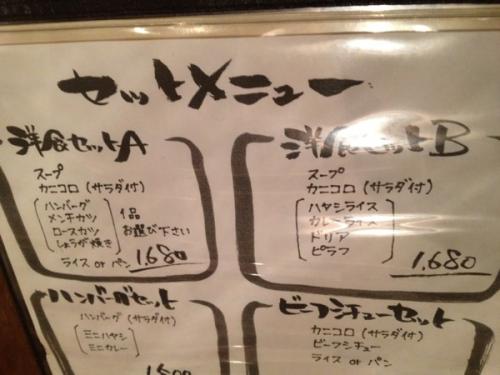 セットメニュー
洋食セットA
スープ
カニコロ（サラダ付）
ハンバーグ
メンチカツ
ロースカツ
しょうが焼き
1品
お選び下さい
ライス or パン
1,680
洋食セットB
スープ
カニコロ（サラダ付）
ハヤシライス
カレーライス
ドリア
ピラフ
1,680
ハンバーグセット
ハンバーグ（サラダ付）
ミニハヤシ
ミニカレー
ビーフシチューセット
カニコロ（サラダ付）
ビーフシチュー
ライス or パン